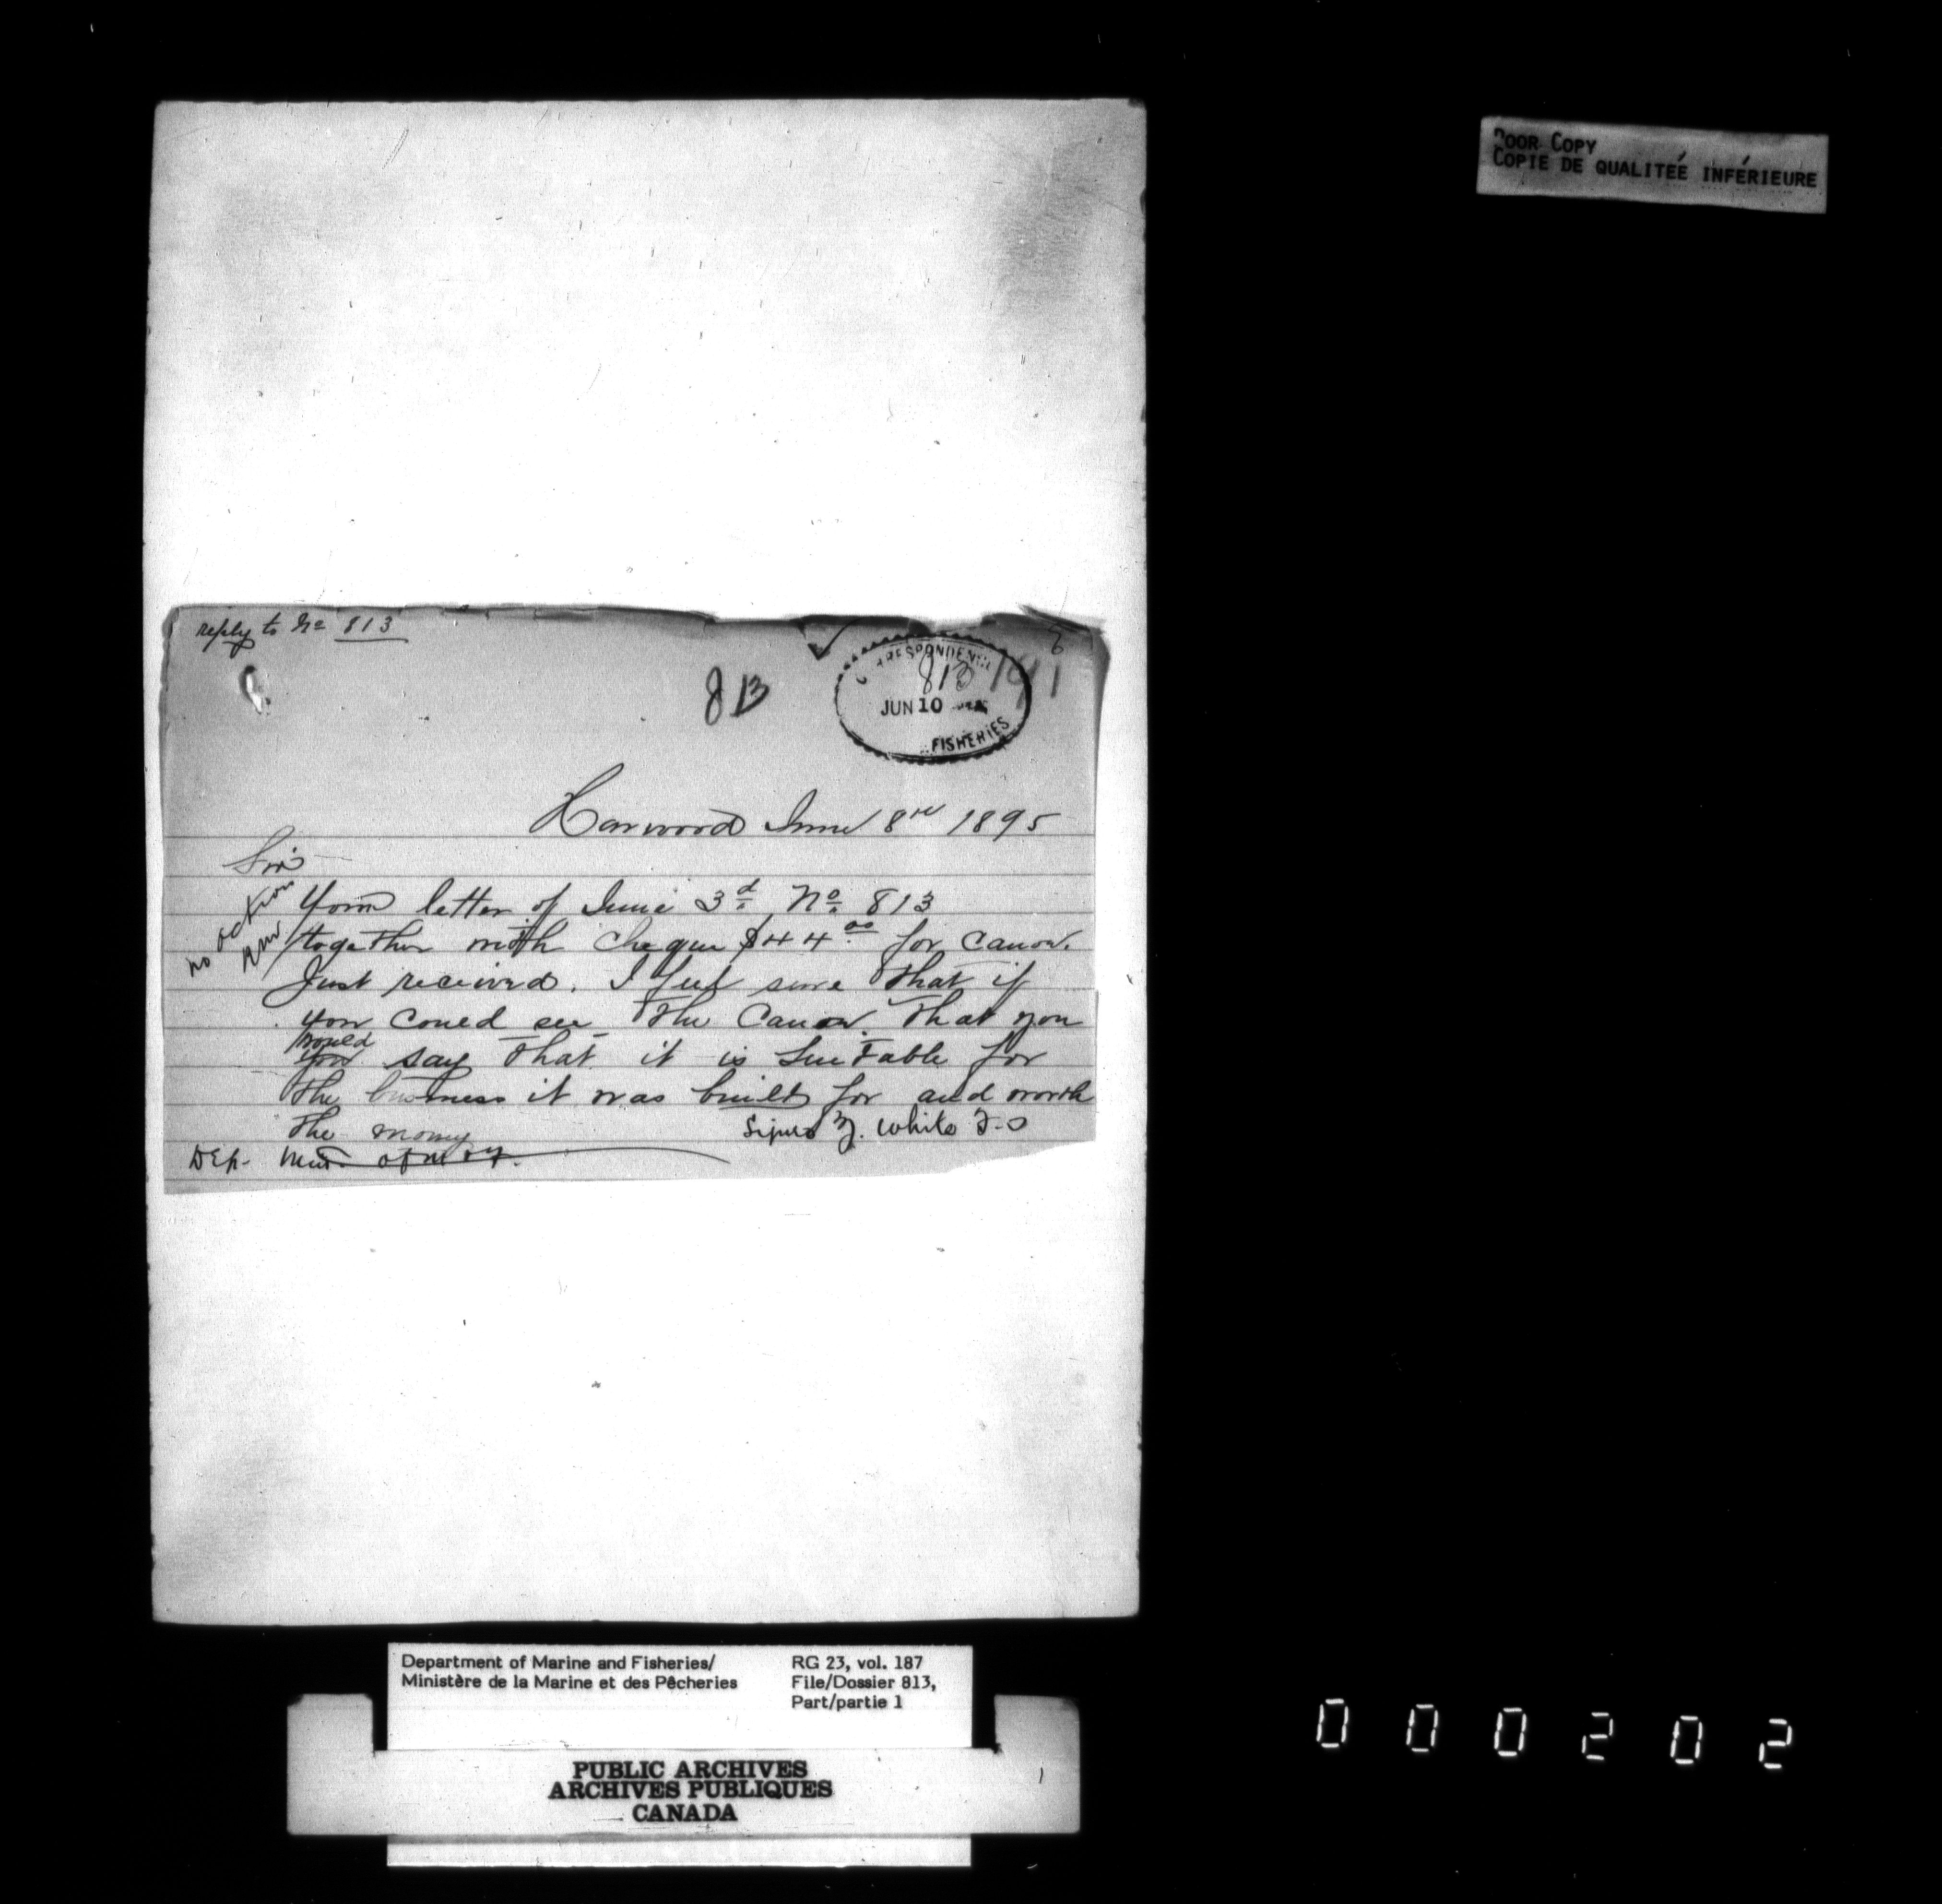 POOR COPY
COPIE DE QUALITÉE INFÉRIEURE
reply to No 813
813
CORRESPONDENCE
813
JUN 10
FISHERIES
Harwood June 8th 1895
Sir
no action
Your letter of June 3d No. 813
together with cheque $44.00 for Canow.
Just received. I feel sure that if
you could see the Canow. that you
would
you say that it is Suetable for
the business it was built for and worth
the money
Signed Z. White F.O
Dep. Min. of M & F.
Department of Marine and Fisheries/
Ministère de la Marine et des Pêcheries
RG 23, vol. 187
File/Dossier 813,
Part/partie 1
PUBLIC ARCHIVES
ARCHIVES PUBLIQUES
CANADA
000202